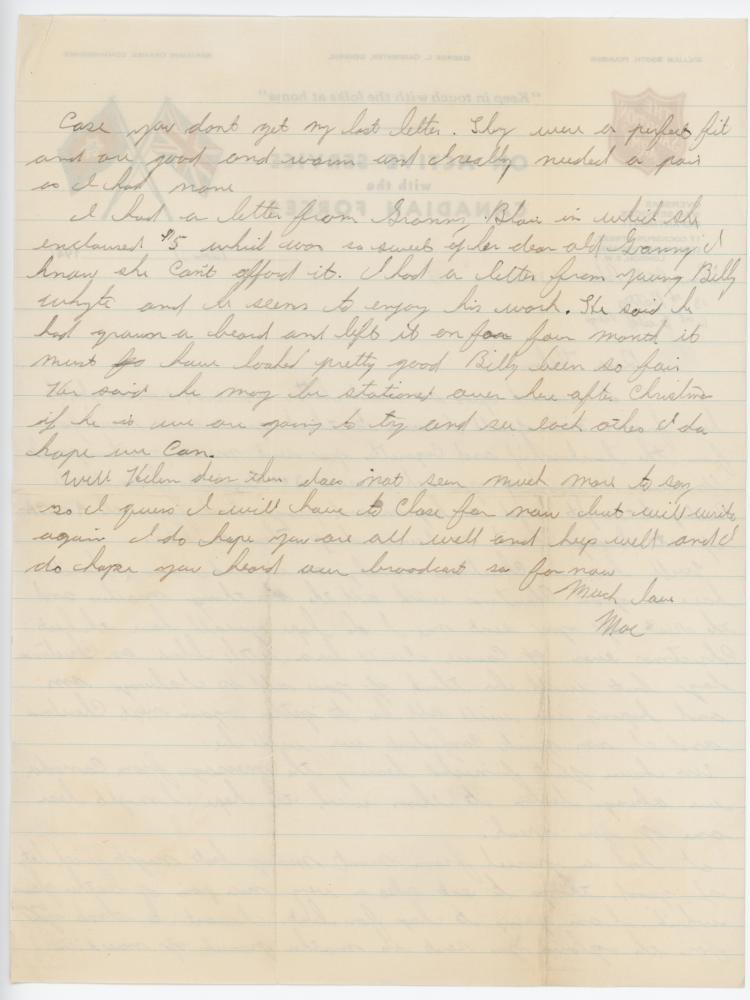 Case you dont get my last letter. They were a perfect fit
and are good and warm and I really needed a pair
as I had none
I had a letter from Granny Blair in which she
enclosed $5 which was so sweet of her dear old Granny I
know she Can't afford it. I had a letter from young Billy
Whyte and he seems to enjoy his work. He said he
had grown a beard and left it on for four month it
must have looked pretty good Billy been so fair
He said he may be stationed over here after Christmas
if he is we are going to try and see each other I do
hope we Can.
Well Helen dear there does not seem much more to say
so I guess I will have to Close for now but will write
again I do hope you are all well and keep well and I
do hope you heard our broadcast so for now
Much love
Mac